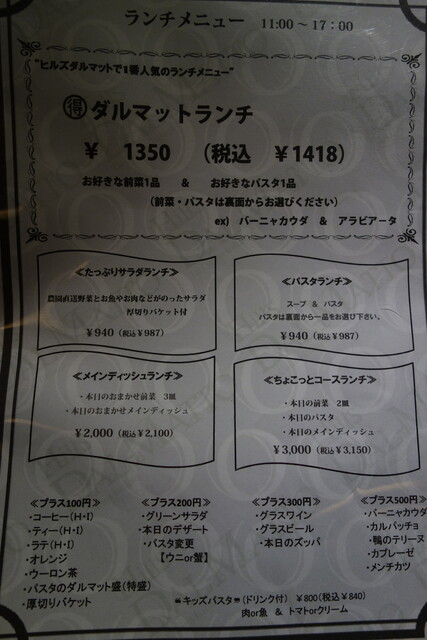 ランチメニュー 11:00～17:00
"ヒルズダルマットで1番人気のランチメニュー"
得 ダルマットランチ
￥ 1350 （税込 ￥1418）
お好きな前菜1品 & お好きなパスタ1品
（前菜・パスタは裏面からお選びください）
ex) バーニャカウダ & アラビアータ
≪たっぷりサラダランチ≫
農園直送野菜とお魚やお肉などがのったサラダ
厚切りバケット付
￥940（税込￥987）
≪パスタランチ≫
スープ & パスタ
パスタは裏面から一品をお選び下さい。
￥940（税込￥987）
≪メインディッシュランチ≫
・本日のおまかせ前菜 3皿
・本日のおまかせメインディッシュ
￥2,000（税込￥2,100）
≪ちょこっとコースランチ≫
・本日の前菜 2皿
・本日のパスタ
・本日のメインディッシュ
￥3,000（税込￥3,150）
≪プラス100円≫
・コーヒー(H・I)
・ティー(H・I)
・ラテ(H・I)
・オレンジ
・ウーロン茶
・パスタのダルマット盛（特盛）
・厚切りバケット
≪プラス200円≫
・グリーンサラダ
・本日のデザート
・パスタ変更
【ウニor蟹】
≪プラス300円≫
・グラスワイン
・グラスビール
・本日のズッパ
≪プラス500円≫
・バーニャカウダ
・カルパッチョ
・鴨のテリーヌ
・カプレーゼ
・メンチカツ
キッズパスタ（ドリンク付） ￥800（税込￥840）
肉or魚 & トマトorクリーム